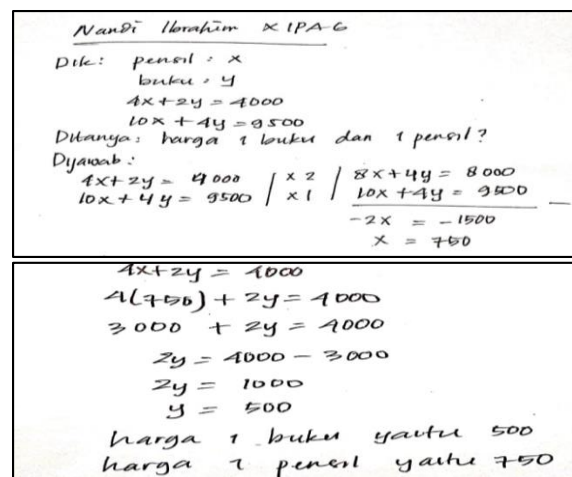 Nandi Ibrahim X IPA 6
Dik: pensil : x
buku : y
4x + 2y = 4000
10x + 4y = 9500
Ditanya: harga 1 buku dan 1 pensil?
Dijawab :
4x + 2y = 4000 | x 2 | 8x + 4y = 8000
10x + 4y = 9500 | x 1 | 10x + 4y = 9500 —
-2x = -1500
x = 750
4x + 2y = 4000
4(750) + 2y = 4000
3000 + 2y = 4000
2y = 4000 - 3000
2y = 1000
y = 500
harga 1 buku yaitu 500
harga 1 pensil yaitu 750